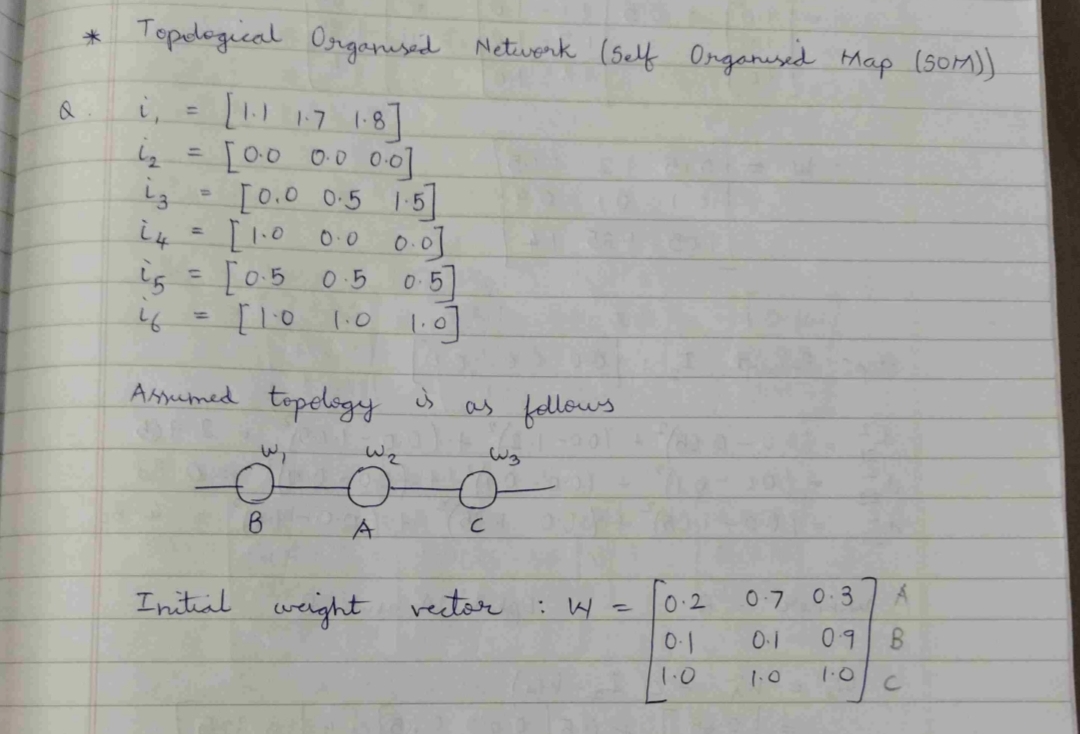 * Topological Organised Network (Self Organised Map (SOM))
Q. i₁ = [1.1 1.7 1.8]
i₂ = [0.0 0.0 0.0]
i₃ = [0.0 0.5 1.5]
i₄ = [1.0 0.0 0.0]
i₅ = [0.5 0.5 0.5]
i₆ = [1.0 1.0 1.0]
Assumed topology is as follows
W₁ W₂ W₃
B A C
Initial weight vector : W = [0.2 0.7 0.3] A
[0.1 0.1 0.9] B
[1.0 1.0 1.0] C